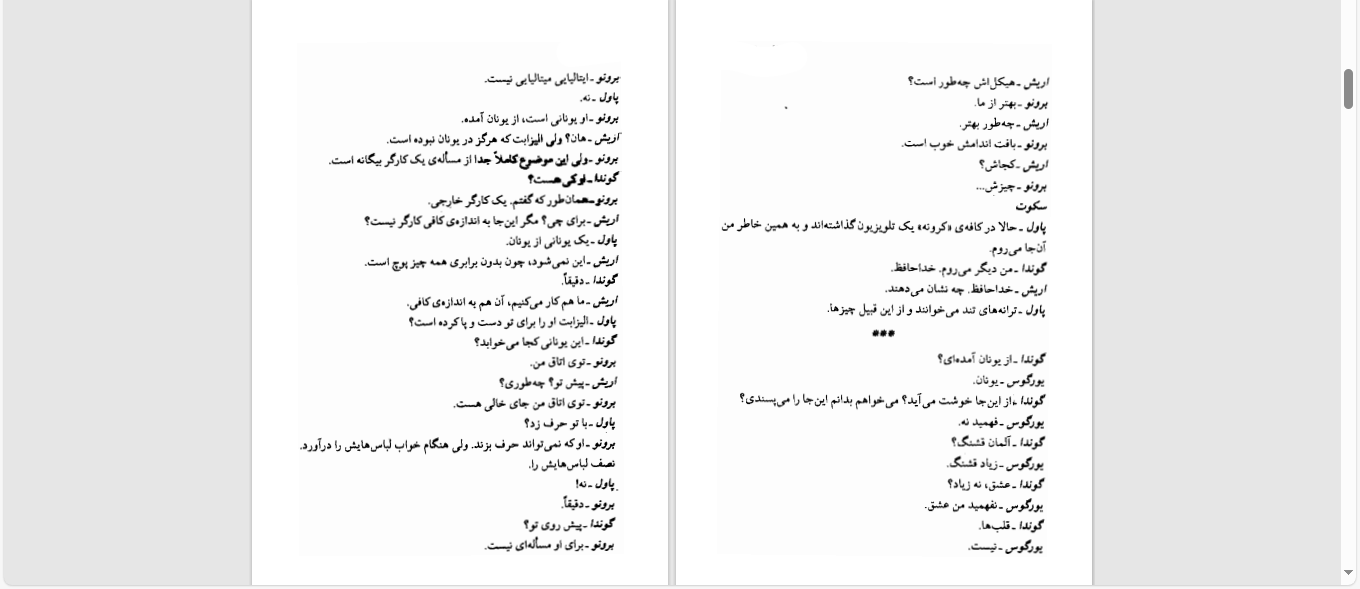 برونو ـ ایتالیایی میتالیایی نیست.
پاول ـ نه.
برونو ـ او یونانی است، از یونان آمده.
اریش ـ هان؟ ولی الیزابت که هرگز در یونان نبوده است.
برونو ـ ولی این موضوع کاملاً جدا از مسأله‌ی یک کارگر بیگانه است.
گوندا ـ او کی هست؟
برونو ـ همان‌طور که گفتم. یک کارگر خارجی.
اریش ـ برای چی؟ مگر این‌جا به اندازه‌ی کافی کارگر نیست؟
پاول ـ یک یونانی از یونان.
اریش ـ این نمی‌شود، چون بدون برابری همه چیز پوچ است.
گوندا ـ دقیقاً.
اریش ـ ما هم کار می‌کنیم، آن هم به اندازه‌ی کافی.
پاول ـ الیزابت او را برای تو دست و پا کرده است؟
گوندا ـ این یونانی کجا می‌خوابد؟
برونو ـ توی اتاق من.
اریش ـ پیش تو؟ چه‌طوری؟
برونو ـ توی اتاق من جای خالی هست.
پاول ـ با تو حرف زد؟
برونو ـ او که نمی‌تواند حرف بزند. ولی هنگام خواب لباس‌هایش را درآورد.
نصف لباس‌هایش را.
پاول ـ نه!
برونو ـ دقیقاً.
گوندا ـ پیش روی تو؟
برونو ـ برای او مسأله‌ای نیست.
اریش ـ هیکل‌اش چه‌طور است؟
برونو ـ بهتر از ما.
اریش ـ چه‌طور بهتر.
برونو ـ بافت اندامش خوب است.
اریش ـ کجاش؟
برونو ـ چیزش...
سکوت
پاول ـ حالا در کافه‌ی «کرونه» یک تلویزیون گذاشته‌اند و به همین خاطر من
آن‌جا می‌روم.
گوندا ـ من دیگر می‌روم. خداحافظ.
اریش ـ خداحافظ. چه نشان می‌دهند.
پاول ـ ترانه‌های تند می‌خوانند و از این قبیل چیزها.
***
گوندا ـ از یونان آمده‌ای؟
یورگوس ـ یونان.
گوندا ـ از این‌جا خوشت می‌آید؟ می‌خواهم بدانم این‌جا را می‌پسندی؟
یورگوس ـ فهمید نه.
گوندا ـ آلمان قشنگ؟
یورگوس ـ زیاد قشنگ.
گوندا ـ عشق، نه زیاد؟
یورگوس ـ نفهمید من عشق.
گوندا ـ قلب‌ها.
یورگوس ـ نیست.